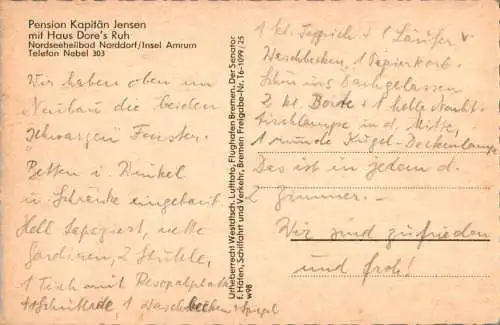 Pension Kapitän Jensen
mit Haus Dore's Ruh
Nordseeheilbad Norddorf/Insel Amrum
Telefon Nebel 303
Wir haben oben im
Neubau die beiden
schwarzen Fenster.
Betten i. Winkel
u. Schränke eingebaut.
Hell tapeziert, nette
Gardinen, 2 Stühle,
1 Tisch mit Resopalplatte
1 Schublade, 1 Waschbecken 1 Spiegel
Urheberrecht Westdtsch. Luftfoto, Flughafen Bremen. Der Senator
f. Häfen, Schiffahrt und Verkehr, Bremen Freigabe-Nr. T6-1099/25
w98
1 kl. Teppich + 1 Läufer v.
Waschbecken, 1 Papierkorb.
2 kl. Borde + 1 helle Nacht-
tischlampe in d. Mitte,
1 runde Kugel-Deckenlampe
Das ist in jedem d.
2 Zimmer. —
Wir sind zufrieden
und froh!